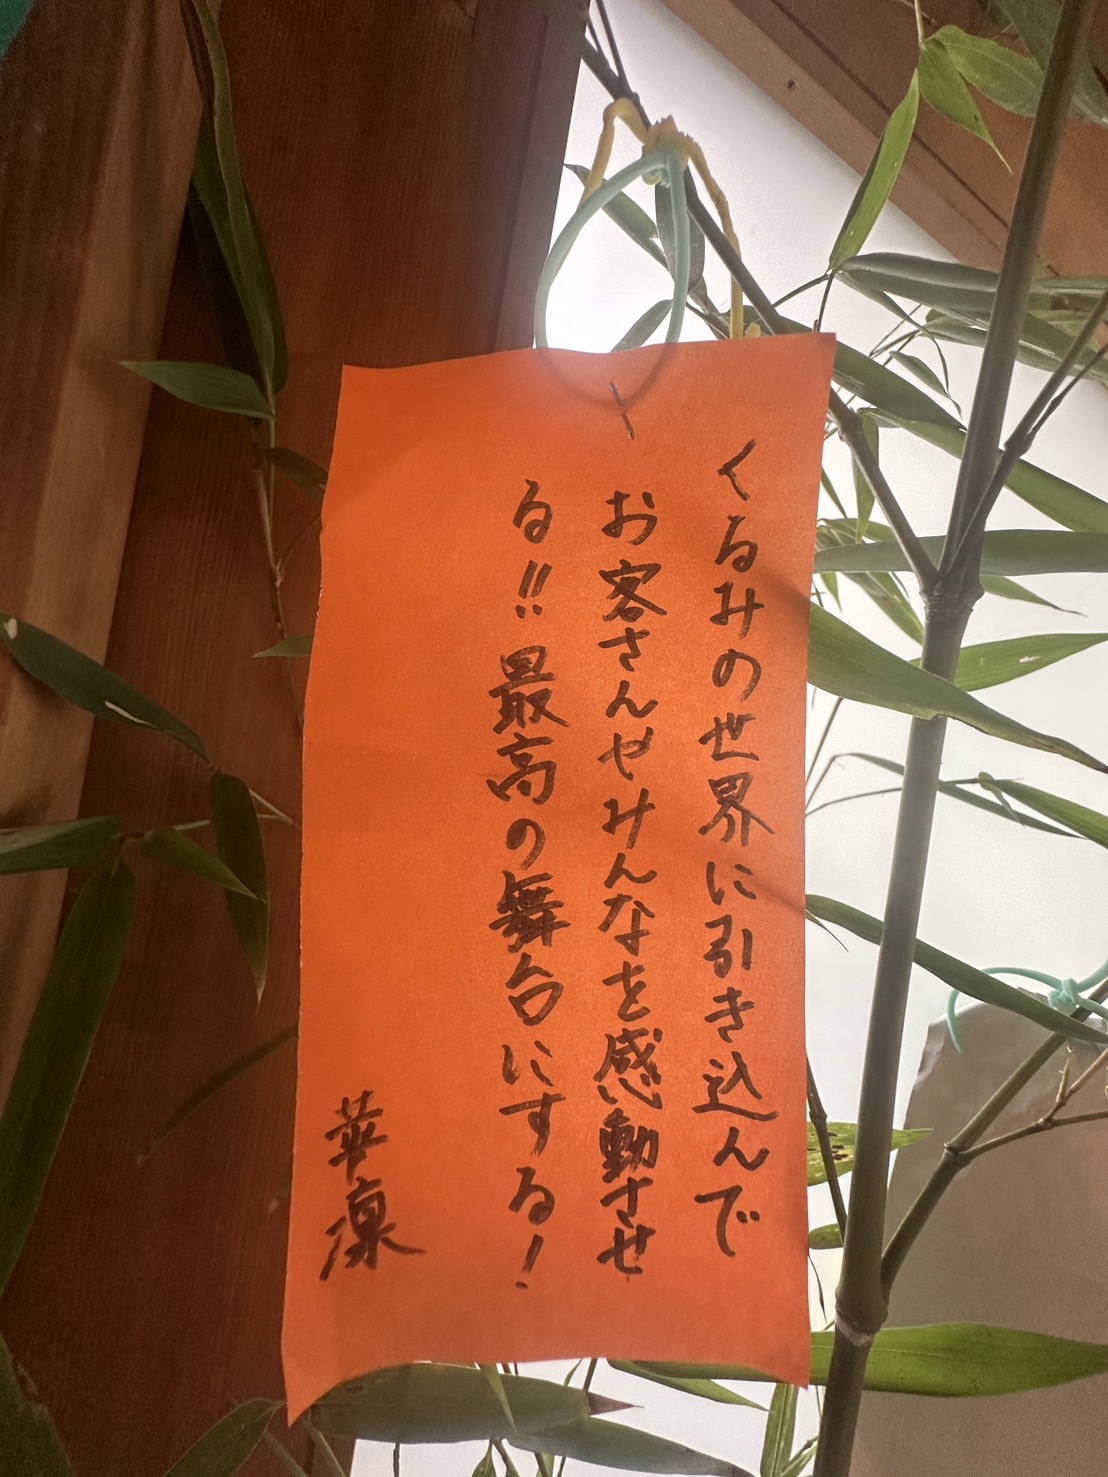 くるみの世界に引き込んで
お客さんやみんなを感動させ
る!! 最高の舞台にする!
華凜